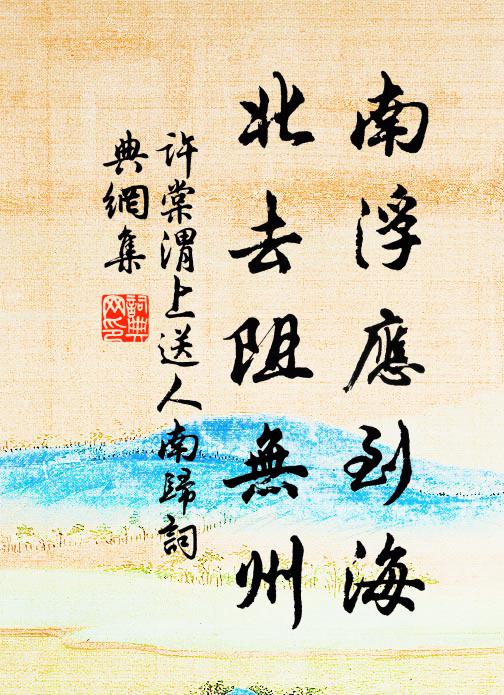 南浮應到海
北去阻無州
許棠渭上送人南歸詞
典網集
詞典網印